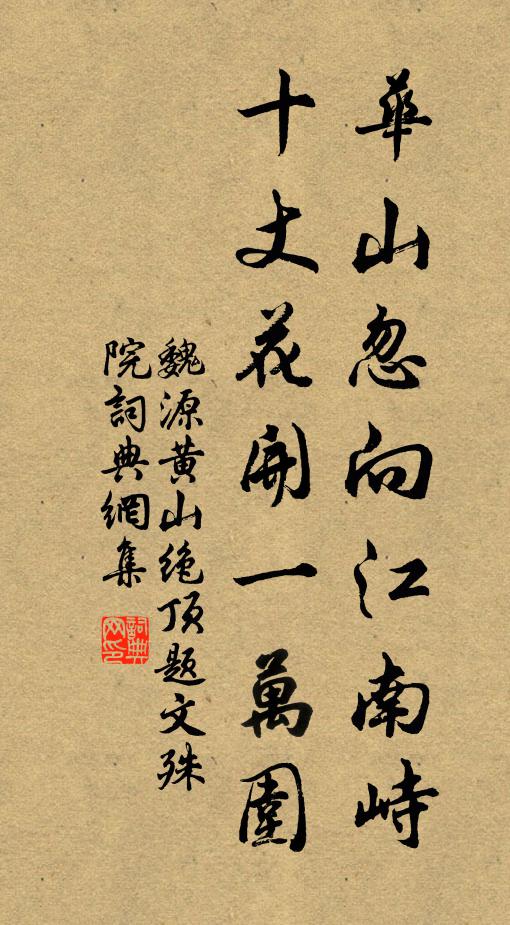 華山忽向江南峙
十丈花開一萬圍
魏源黄山绝頂题文殊
院詞典網集
詞典网印